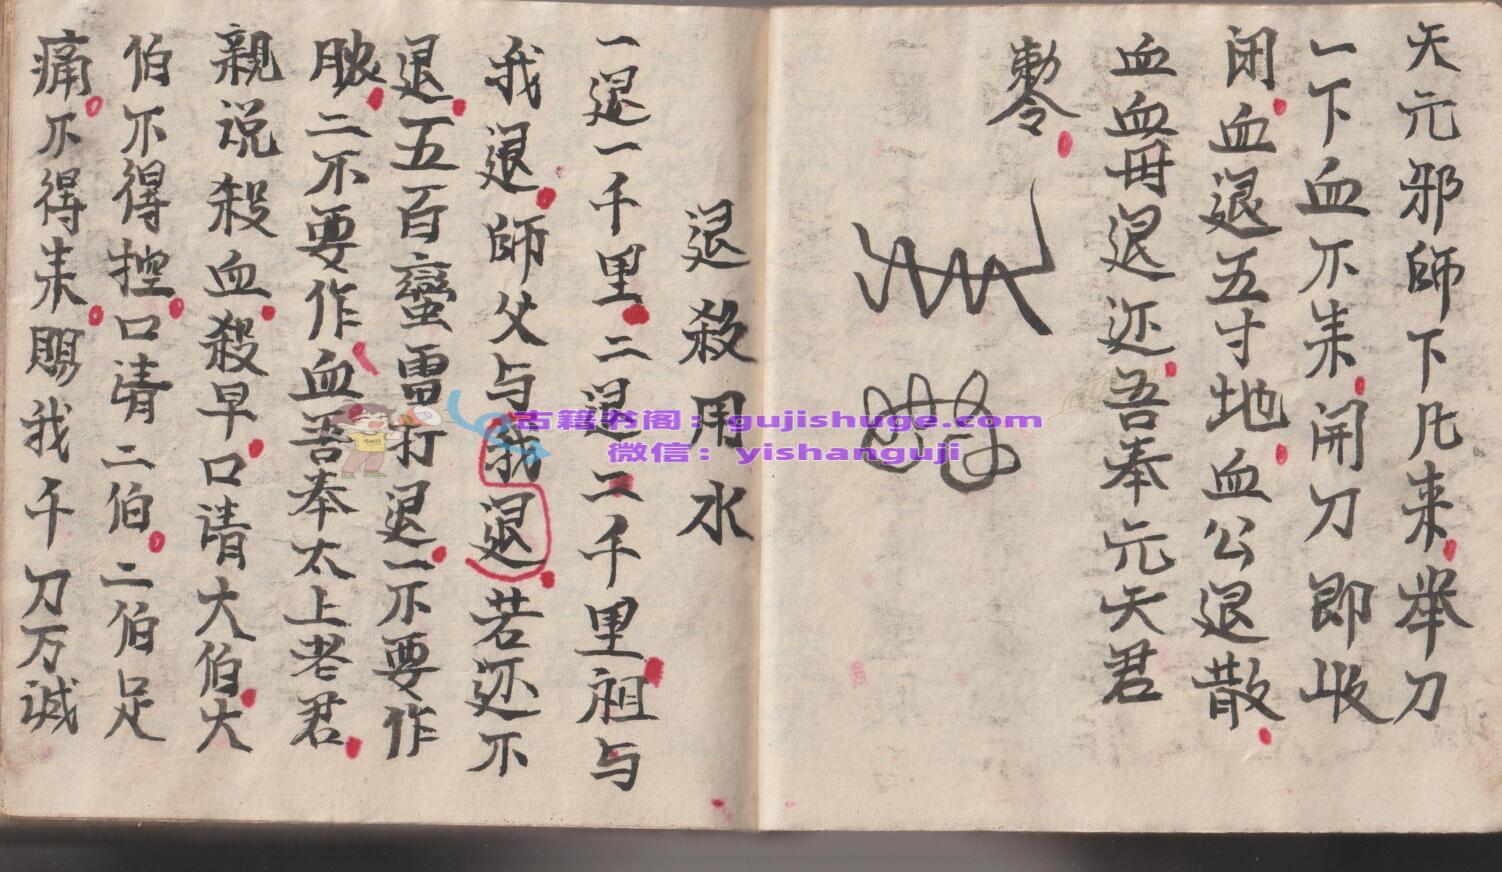 天元邪師下凡来举刀
一下血不来開刀即收
闭血退五寸地血公退散
血血毋退还吾奉元天君
勅令
退殺用水
一退一千里二退二千里祖与
我退師父与我退若还不
退五百蠻雷打退一不要作
脓二不要作血吾奉太上老君
親说殺血殺早口请大伯大
伯不得控口请二伯二伯足
痛不得来赐我千刀万
古籍书阁：gujishuge.com
微信：yishanguji